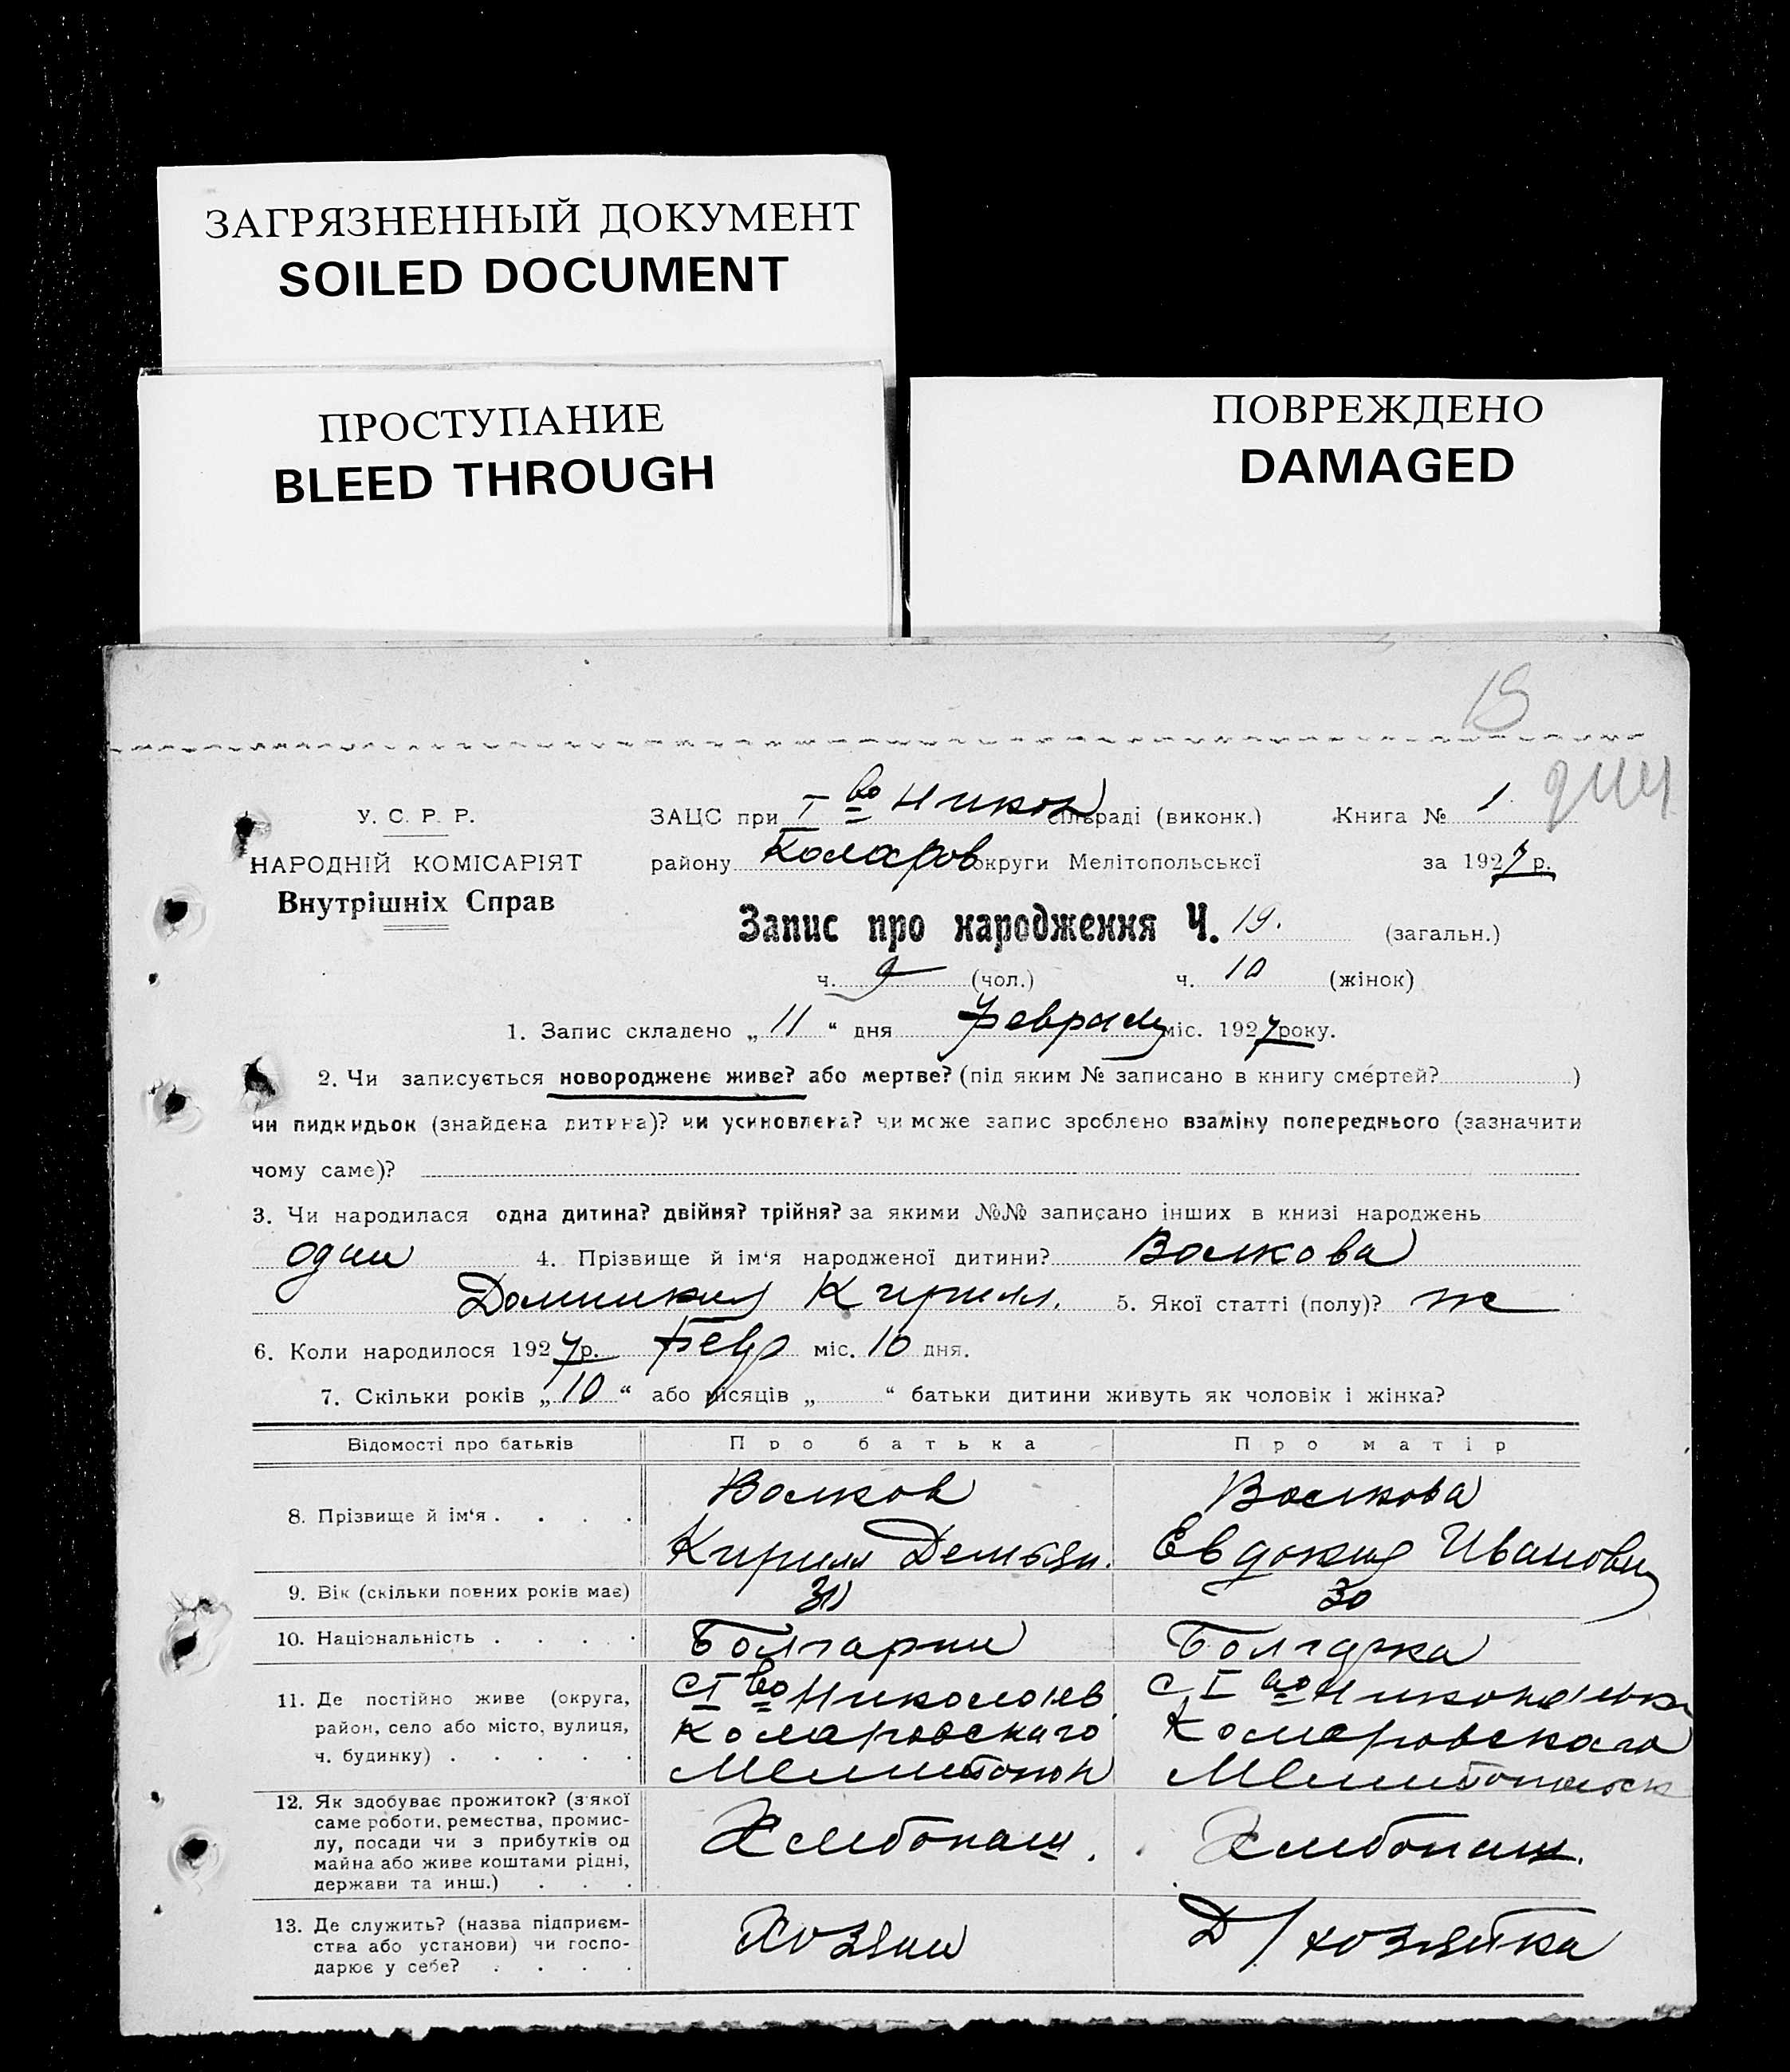 ЗАГРЯЗНЕННЫЙ ДОКУМЕНТ
SOILED DOCUMENT
ПРОСТУПАНИЕ
BLEED THROUGH
ПОВРЕЖДЕНО
DAMAGED
У. С. Р. Р.
НАРОДНІЙ КОМІСАРІЯТ
Внутрішніх Справ
ЗАЦС при I во Никол сільраді (виконк.)
району Коларов округи Мелітопольської
Книга № 1.
за 1927 р.
Запис про народження Ч. 19. (загальн.)
ч. 9 (чол.) ч. 10 (жінок)
1. Запис складено „ 11 “ дня Февраля міс. 1927 року.
2. Чи записується новороджене живе? або мертве? (під яким № записано в книгу смертей? )
чи пидкидьок (знайдена дитина)? чи усиновлена? чи може запис зроблено взаміну попереднього (зазначити
чому саме)?
3. Чи народилася одна дитина? двійня? трійня? за якими №№ записано інших в книзі народжень
один 4. Прізвище й ім‘я народженої дитини? Волкова
Домникия Кирилл. 5. Якої статті (полу)? ж
6. Коли народилося 1927 р. Февр міс. 10 дня.
7. Скільки років „ 10 “ або місяців „ “ батьки дитини живуть як чоловік і жінка?
Відомості про батьків Про батька Про матір
8. Прізвище й ім‘я . . . . Волков Волкова
Кирилл Демьян. Евдокия Ивановн
9. Вік (скільки повних років має) 30
10. Національність . . . . . Болгарин Болгарка
11. Де постійно живе (округа, с I во Николаев с. I во Николаевка
район, село або місто, вулиця, Коларовскаго Коларовскаго
ч. будинку) . . . . . Мелитопол Мелитопольск
12. Як здобуває прожиток? (з якої
саме роботи, ремества, промис-
лу, посади чи з прибутків од Хлебопаш. Хлебопаш.
майна або живе коштами рідні,
держави та инш.) . . .
13. Де служить? (назва підприєм-
ства або установи) чи госпо- Хозяин Д/хозяйка
дарює у себе? . . . .